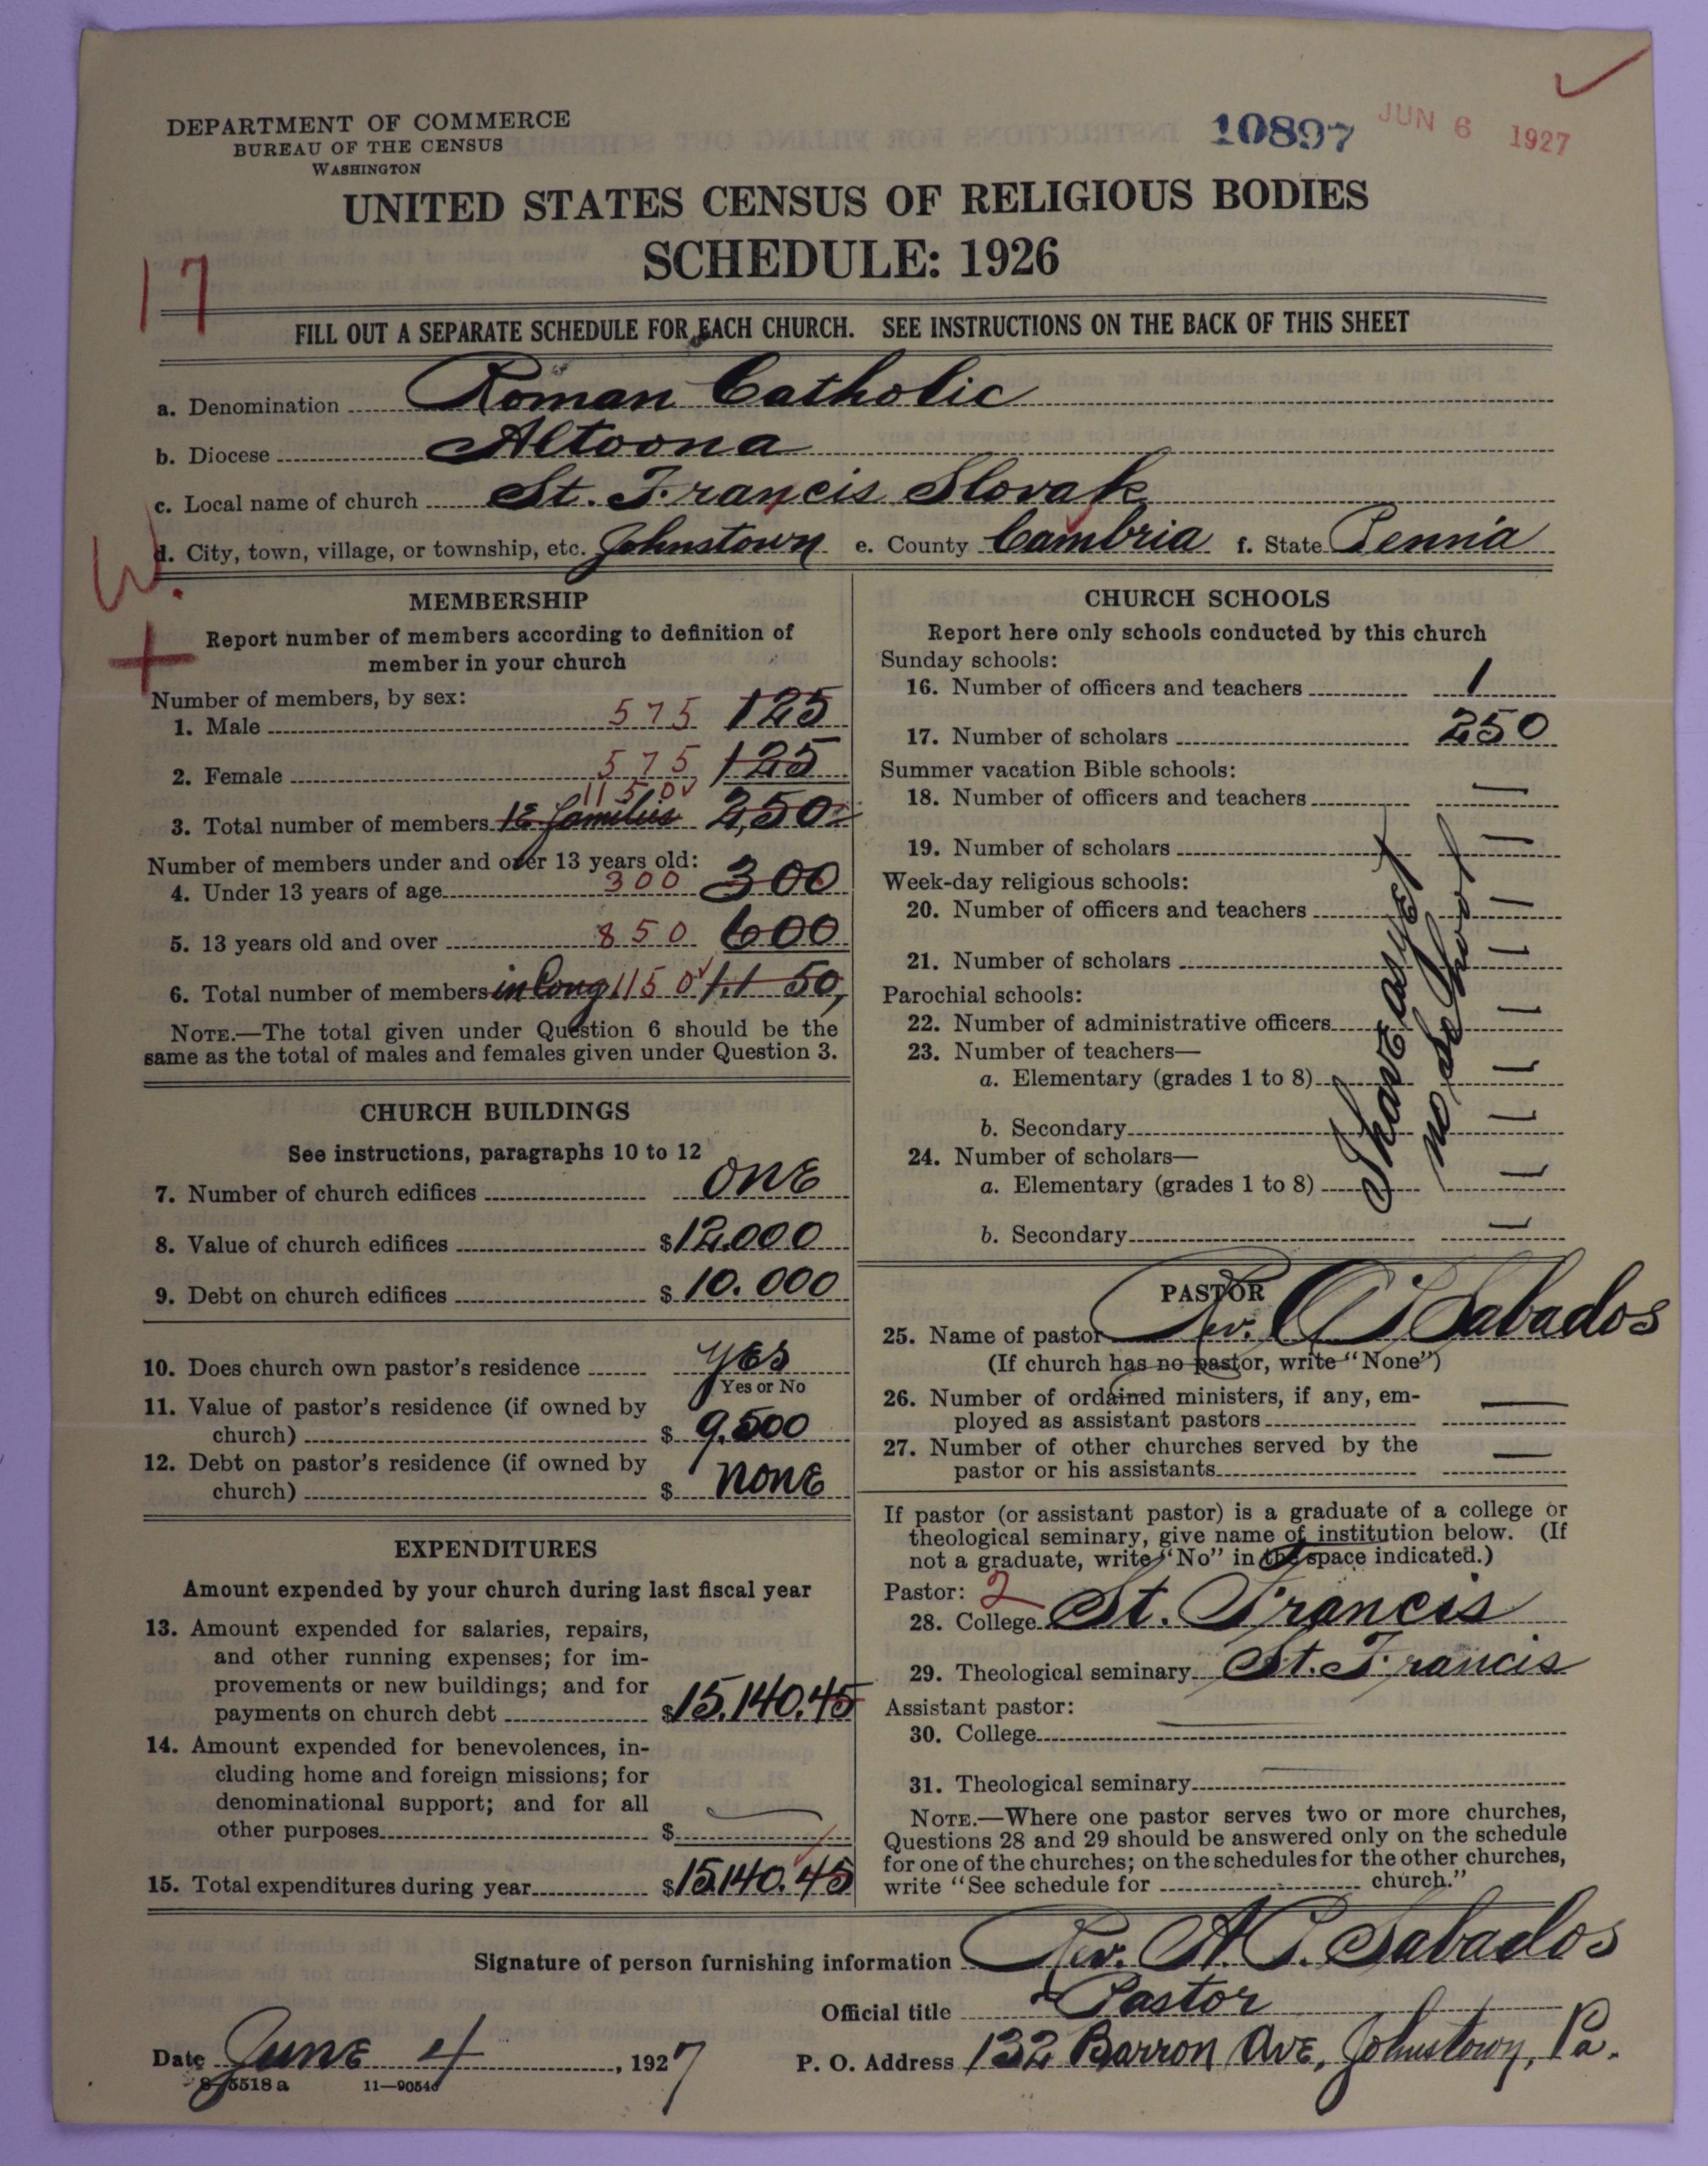 DEPARTMENT OF COMMERCE
BUREAU OF THE CENSUS
WASHINGTON
10897 JUN 6 1927
UNITED STATES CENSUS OF RELIGIOUS BODIES
SCHEDULE: 1926
17
FILL OUT A SEPARATE SCHEDULE FOR EACH CHURCH. SEE INSTRUCTIONS ON THE BACK OF THIS SHEET
a. Denomination Roman Catholic
b. Diocese Altoona
c. Local name of church St. Francis Slovak
d. City, town, village, or township, etc. Johnstown e. County Cambria f. State Penna
W.
MEMBERSHIP
Report number of members according to definition of
member in your church
Number of members, by sex:
1. Male 575 125
2. Female 575 125
1150
3. Total number of members families 250
Number of members under and over 13 years old:
4. Under 13 years of age 300 300
5. 13 years old and over 850 600
6. Total number of members in Cong 1150 1150
NOTE.—The total given under Question 6 should be the
same as the total of males and females given under Question 3.
CHURCH BUILDINGS
See instructions, paragraphs 10 to 12
7. Number of church edifices ONE
8. Value of church edifices $12.000
9. Debt on church edifices $10.000
10. Does church own pastor's residence yes
Yes or No
11. Value of pastor's residence (if owned by
church) $9.500
12. Debt on pastor's residence (if owned by
church) $ NONE
EXPENDITURES
Amount expended by your church during last fiscal year
13. Amount expended for salaries, repairs,
and other running expenses; for im-
provements or new buildings; and for
payments on church debt $15.140.45
14. Amount expended for benevolences, in-
cluding home and foreign missions; for
denominational support; and for all
other purposes $
15. Total expenditures during year $15.140.45
CHURCH SCHOOLS
Report here only schools conducted by this church
Sunday schools:
16. Number of officers and teachers 1
17. Number of scholars 250
Summer vacation Bible schools:
18. Number of officers and teachers —
19. Number of scholars —
Week-day religious schools:
20. Number of officers and teachers —
21. Number of scholars —
Parochial schools:
22. Number of administrative officers —
23. Number of teachers—
a. Elementary (grades 1 to 8) —
b. Secondary —
24. Number of scholars—
a. Elementary (grades 1 to 8) —
b. Secondary —
I have as yet
no school
PASTOR
25. Name of pastor Rev. Sabados
(If church has no pastor, write "None")
26. Number of ordained ministers, if any, em-
ployed as assistant pastors —
27. Number of other churches served by the
pastor or his assistants —
If pastor (or assistant pastor) is a graduate of a college or
theological seminary, give name of institution below. (If
not a graduate, write "No" in the space indicated.)
Pastor: 2
28. College St. Francis
29. Theological seminary St. Francis
Assistant pastor:
30. College
31. Theological seminary
NOTE.—Where one pastor serves two or more churches,
Questions 28 and 29 should be answered only on the schedule
for one of the churches; on the schedules for the other churches,
write "See schedule for church."
Signature of person furnishing information Rev. A. P. Sabados
Official title Pastor
Date June 4, 1927 P. O. Address 132 Barron Ave, Johnstown, Pa.
8-5518a 11—9054